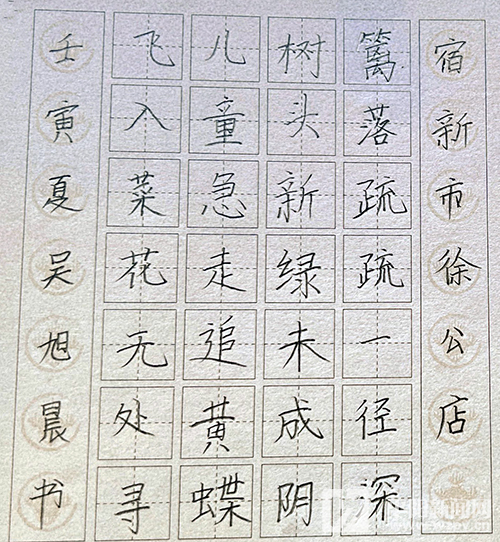 宿新市徐公店
篱落疏疏一径深
树头新绿未成阴
儿童急走追黄蝶
飞入菜花无处寻
壬寅夏吴旭晨书